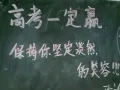 高考一定赢
保持你坚定淡然
的笑容